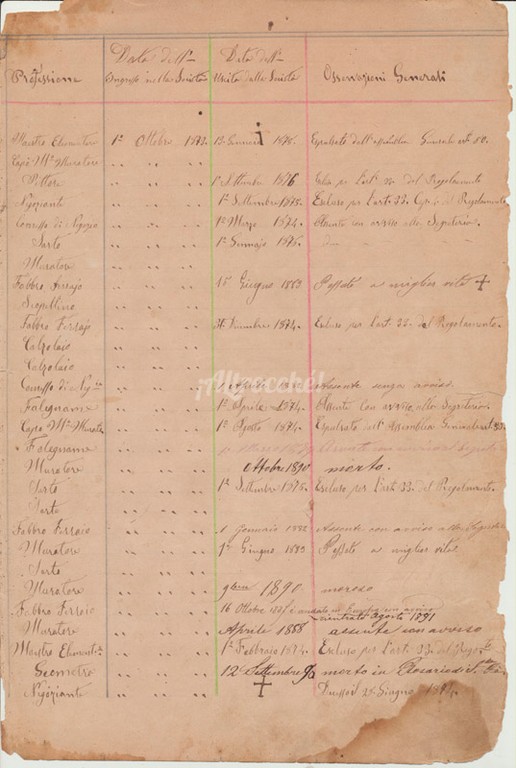 Professione Data dell' Ingresso nella Società Data dell' Uscita dalla Società Osservazioni Generali
Maestro Elementare 1º Ottobre 1873. 13 Gennaio 1878. Espulsato dell'assemblea Generale art 50.
Capo Mº Muratore " " "
Pittore " " " 1º Settembre 1876 per l'art. 20 del Regolamento
Negoziante " " " 1º Settembre 1875. Escluso per l'art. 33. del Regolamento
Commesso di Negozio " " " 1º Marzo 1874. Assente con avviso alla Segreteria.
Sarto " " " 1º Gennajo 1876.
Muratore " " "
Fabbro Ferrajo " " " 15 Giugno 1883 Passato a miglior vita †
Scopellino " " "
Fabbro Ferrajo " " " 1874. Escluso per l'art. 33. del Regolamento.
Calzolajo " " "
Calzolajo " " "
¡Altroscohé!
Commesso di " " " Assente senza avviso.
Falegname " " " 1º Aprile 1874. Assente con avviso alla Segreteria
Capo Mº Muratore " " " 1º Agosto 1874. Espulsato dell'Assemblea Generale
Falegname " " "
Muratore " " " Ottobre 1890 morto.
Sarto " " " 1º Settembre 1875. Escluso per l'art. 33. del Regolamento.
Sarto " " "
Fabbro Ferraio " " " 1 Gennaio 1882 Assente con avviso alla
Muratore " " " 1º Giugno 1883 Passato a miglior vita.
Sarto " " "
Muratore " " " 9bre 1890. moroso
Fabbro Ferraio " " " 16 Ottobre andato in Europa con avviso
rientrato agosto 1891
Muratore " " " Aprile 1888 assente con avviso
Maestro Elementare " " " 1º Febbrajo 1874. Escluso per l'art. 33. del
Geometra " " " 12 Settembre 90 morto in Rosario di Sta Fè
Negoziante " " " † Giugno